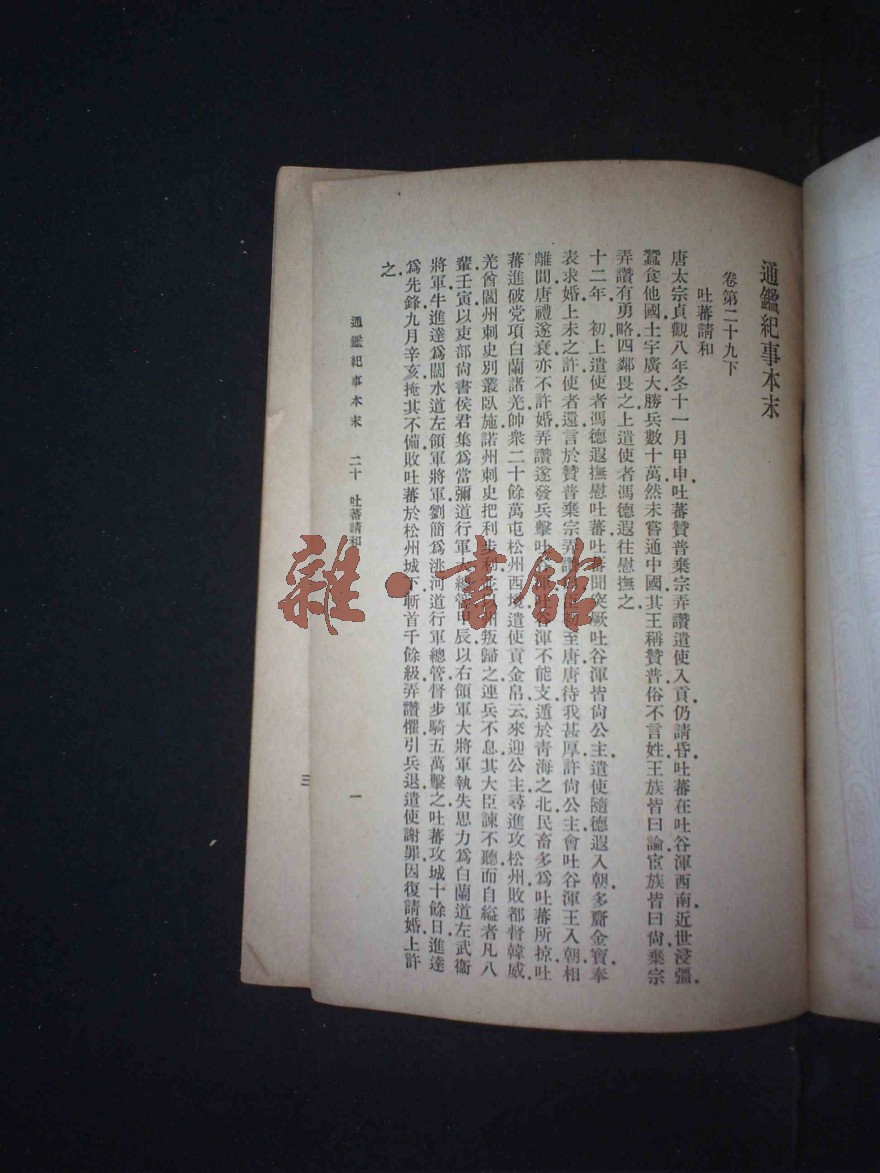 通鑑紀事本末
卷第二十九下
吐蕃請和
唐太宗貞觀八年冬十一月甲申吐蕃贊普棄宗弄讚遣使入貢仍請昏吐蕃在吐谷渾西南近世浸彊
蠶食他國土宇廣大勝兵數十萬然未嘗通中國其王稱贊普俗不言姓王族皆曰論宦族皆曰尙棄宗
弄讚有勇略四鄰畏之上遣使者馮德遐往慰撫之
十二年 初上遣使者馮德遐撫慰吐蕃吐蕃聞突厥吐谷渾皆尙公主遣使隨德遐入朝多齎金寶奉
表求婚上未之許使者還言於贊普棄宗弄讚至唐唐待我甚厚許尙公主會吐谷渾王入朝相
離間唐禮遂衰亦不許婚弄讚遂發兵擊吐谷渾不能支遁於青海之北民畜多爲吐蕃所掠吐
蕃進破党項白蘭諸羌帥衆二十餘萬屯松州西境遣使貢金帛云來迎公主尋進攻松州敗都督韓威
羌酋閻州刺史別叢臥施諾州刺史把利步利並州叛歸之連兵不息其大臣諫不聽而自縊者凡八
輩壬寅以吏部尙書侯君集爲當彌道行軍大總管甲辰以右領軍大將軍執失思力爲白蘭道左武衞
將軍牛進達爲闊水道左領軍將軍劉簡爲洮河道行軍總管督步騎五萬擊之吐蕃攻城十餘日進達
爲先鋒九月辛亥掩其不備敗吐蕃於松州城下斬首千餘級弄讚懼引兵退遣使謝罪因復請婚上許
之
通鑑紀事本末 二十 吐蕃請和
一
三
雜·書館